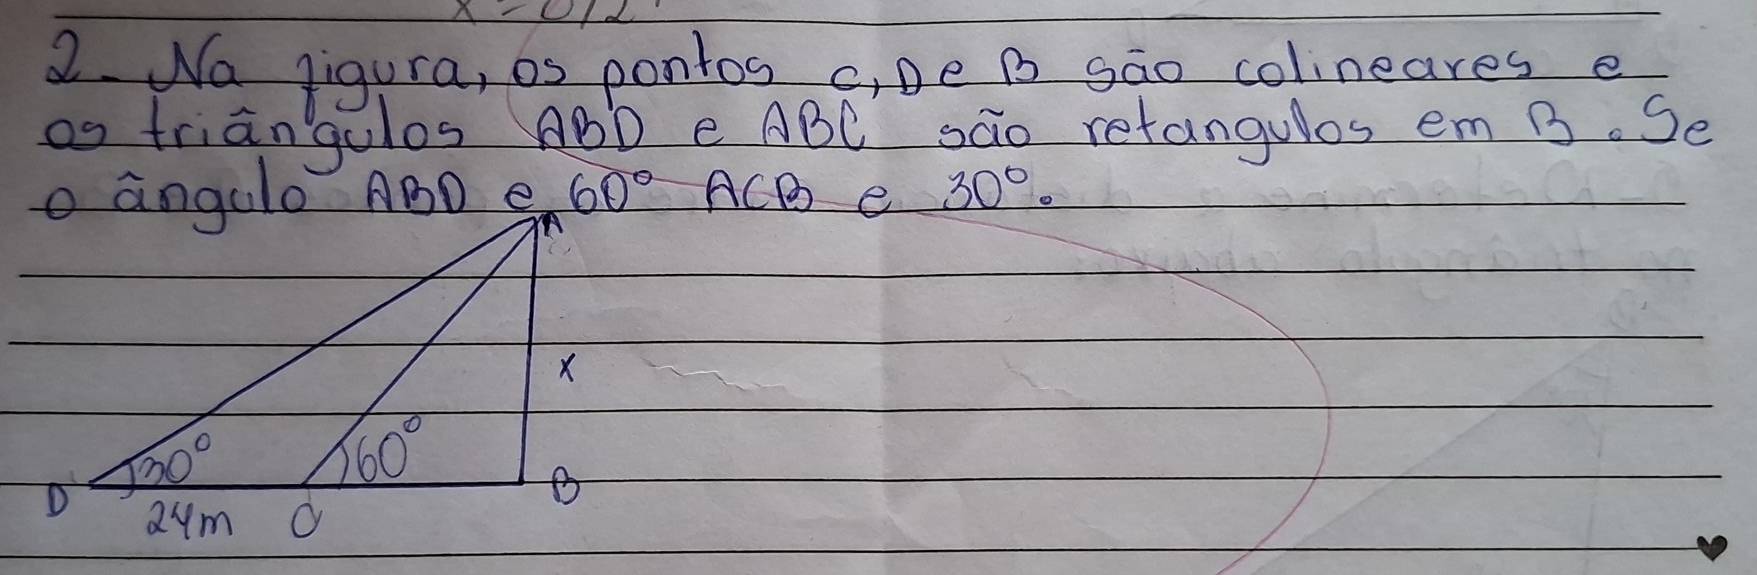 2- Na figura, os pontos C, D e B são colineares e
os triângulos ABD e ABC são retangulos em B. Se
o ângulo ABD e 60° ACB e 30°.
A
x
30°
60°
D
B
24m
C